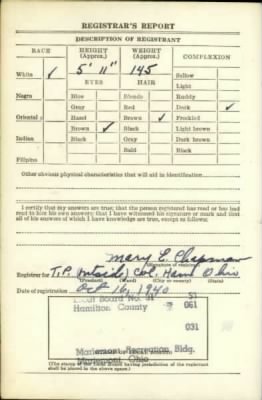 REGISTRAR'S REPORT
DESCRIPTION OF REGISTRANT
RACE HEIGHT (Approx.) WEIGHT (Approx.) COMPLEXION
White ✓ 5' 11" 145 Sallow
EYES HAIR Light
Negro Blue Blonde Ruddy
Gray Red Dark ✓
Oriental Hazel Brown ✓ Freckled
Brown ✓ Black Light brown
Indian Black Gray Dark brown
Bald Black
Filipino
Other obvious physical characteristics that will aid in identification
I certify that my answers are true; that the person registered has read or has had
read to him his own answers; that I have witnessed his signature or mark and that
all of his answers of which I have knowledge are true, except as follows:
Mary E. Chapman
(Signature of registrar)
Registrar for T.P. Ohio
(Precinct) (Ward) (City or county) (State)
Date of registration Oct 16, 1940
Local Board No. 51
Hamilton County 061
031
Mariemont Recreation Bldg.
Mariemont Ohio
(The stamp of the Local Board having jurisdiction of the registrant
shall be placed in the above space.)